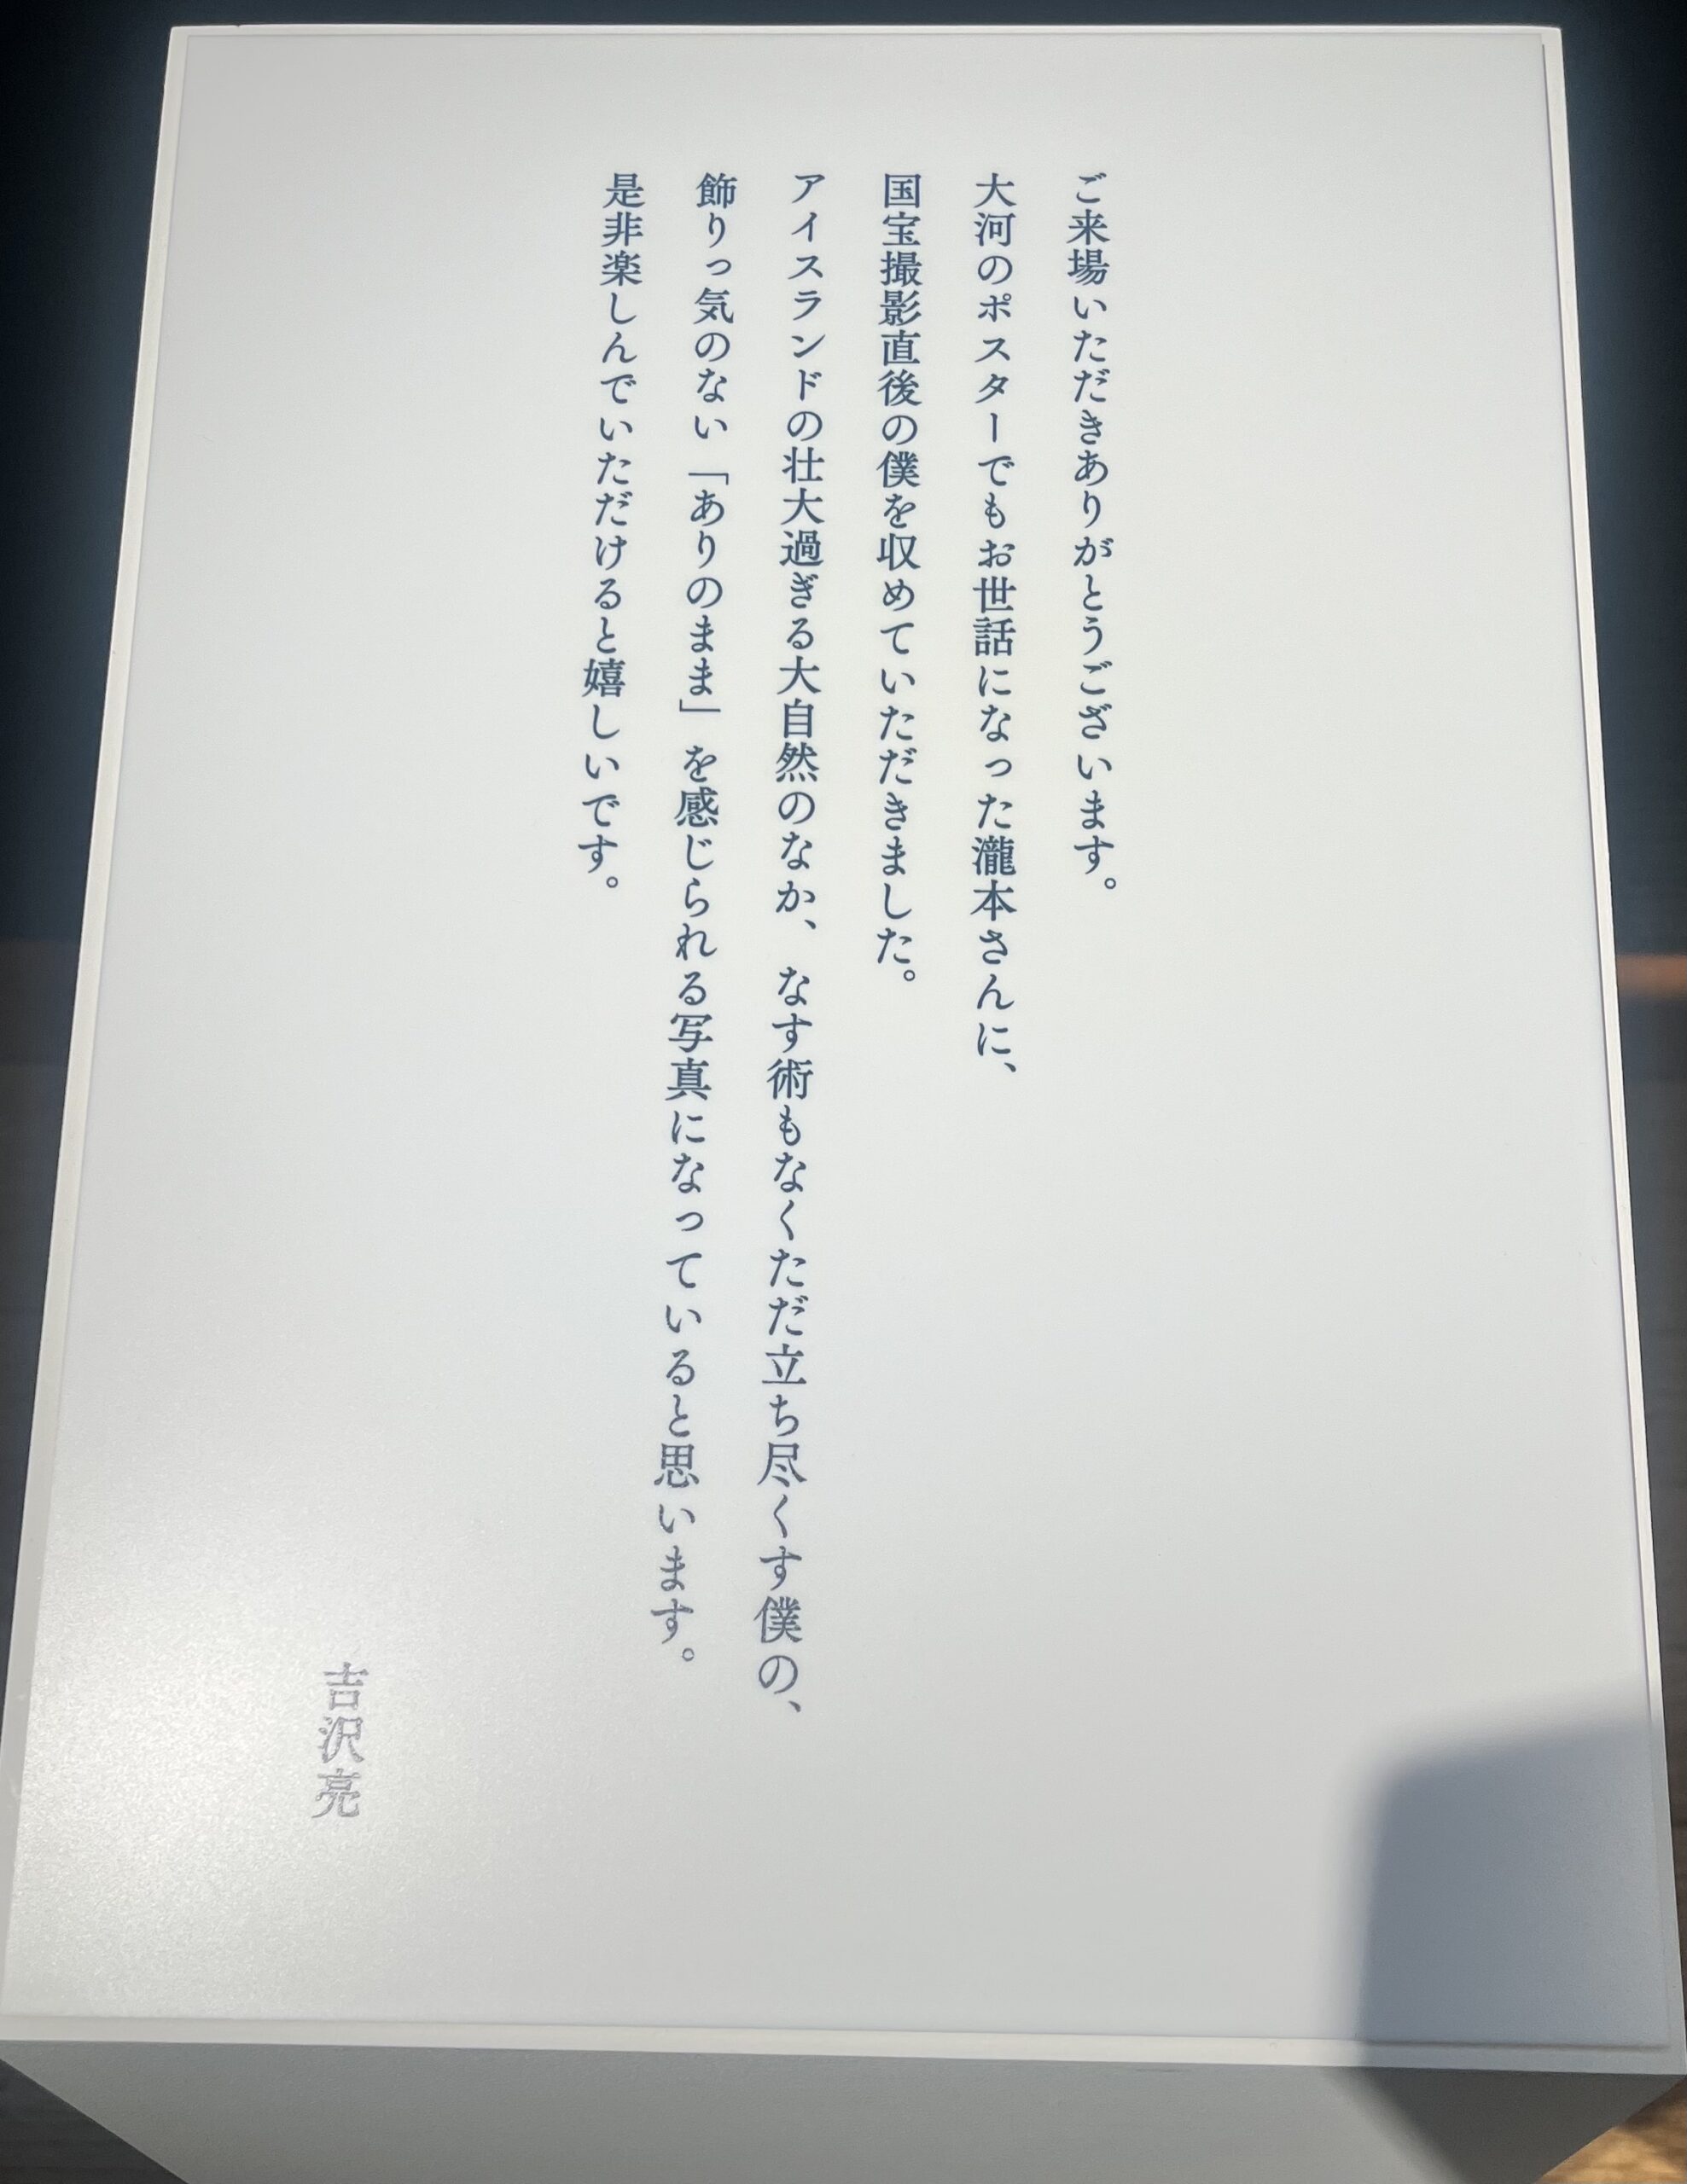 ご来場いただきありがとうございます。
大河のポスターでもお世話になった瀧本さんに、
国宝撮影直後の僕を収めていただきました。
アイスランドの壮大過ぎる大自然のなか、なす術もなくただ立ち尽くす僕の、
飾りっ気のない「ありのまま」を感じられる写真になっていると思います。
是非楽しんでいただけると嬉しいです。
吉沢亮